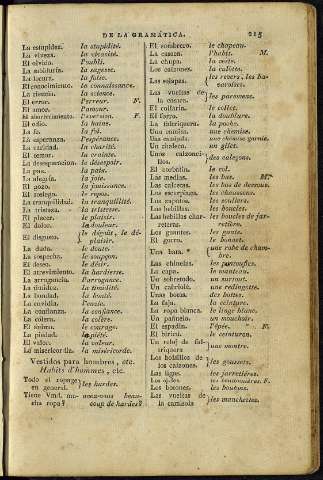 DE LA GRAMÁTICA. 215
La estupidez. la stupidité.
La viveza. la vivacité.
El olvido. l'oubli.
La sabiduría. la sagesse.
La locura. la folie.
El conocimiento. la connaissance.
La ciencia. la science.
El error. l'erreur. F.
El amor. l'amour.
El aborrecimiento. l'aversion. F.
El odio. la haine.
La fe. la foi.
La esperanza. l'espérance.
La caridad. la charité.
El temor. la crainte.
La desesperacion. le désespoir.
La paz. la paix.
La alegría. la joie.
El gozo. la jouissance.
El sosiego. le repos.
La tranquilidad. la tranquillité.
La tristeza. la tristesse.
El placer. le plaisir.
El dolor. la douleur.
El disgusto. le dégoût, le déplaisir.
La duda. le doute.
La sospecha. le soupçon.
El deseo. le désir.
El atrevimiento. la hardiesse.
La arrogancia. l'arrogance.
La timidez. la timidité.
La bondad. la bonté.
La envidia. l'envie.
La confianza. la confiance.
La cólera. la colère.
El ánimo. le courage.
La piedad. la piété.
El valor. la valeur.
La misericordia. la miséricorde.
Vestidos para hombres, etc.
Habits d'hommes, etc.
Todo el ropage en general. les hardes.
Tiene Vmd. mucha ropa? avez-vous beaucoup de hardes?
El sombrero. le chapeau.
La casaca. l'habit. M.
La chupa. la veste.
Los calzones. la culotte.
Las vueltas de la casaca. les paremens.
El collarin. le collet.
El forro. la doublure.
La faltriquera. la poche.
Una camisa. une chemise.
Un chaleco. un gilet.
Unos calzoncillos. des caleçons.
El corbatin. le col.
Las medias. les bas.
Las calcetas. les bas de dessous.
Los escarpines. les chaussons.
Los zapatos. les souliers.
Las hebillas. les boucles.
Las hebillas charreteras. les boucles de jarretière.
Los guantes. les gants.
El gorro. le bonnet.
Una bata. une robe de chambre.
Las chinelas. les pantoufles.
La capa. le manteau.
Un sobretodo. un surtout.
Un cabriolé. une redingotte.
Unas botas. des bottes.
La faja. la ceinture.
La ropa blanca. le linge blanc.
Un pañuelo. un mouchoir.
El espadin. l'épée. F.
El biricú. le ceinturon.
Un relox de faltriquera. une montre.
Los bolsillos de los calzones. les goussets.
Las ligas. les jarretières.
Los ojales. les boutonnières. F.
Los botones. les boutons.
Las vueltas de la camisola. les manchettes.